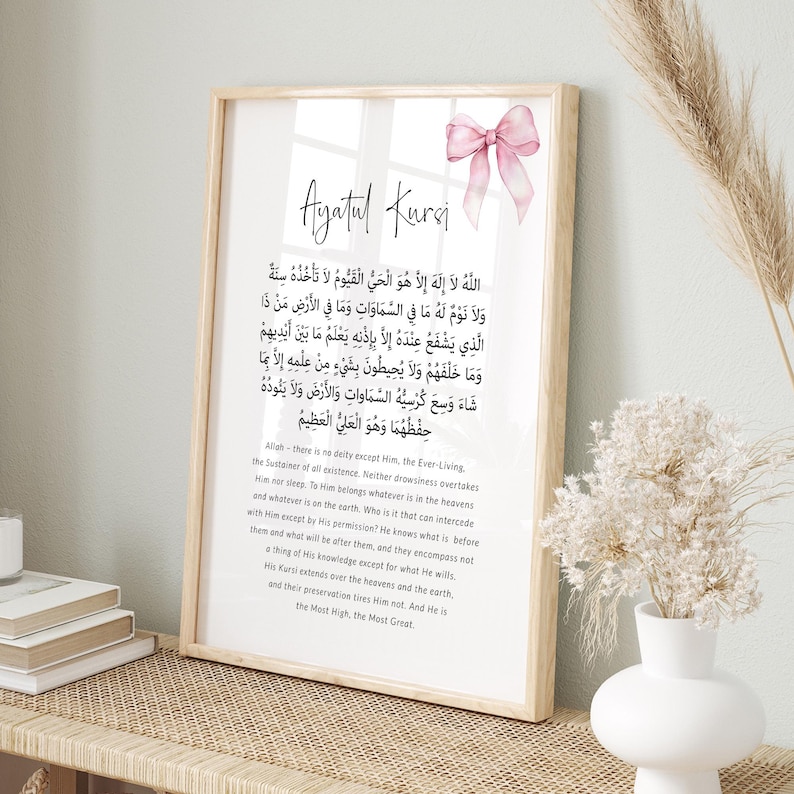 Ayatul Kursi
اللَّهُ لاَ إِلَهَ إِلاَّ هُوَ الْحَيُّ الْقَيُّومُ لاَ تَأْخُذُهُ سِنَةٌ
وَلاَ نَوْمٌ لَهُ مَا فِي السَّمَاوَاتِ وَمَا فِي الأَرْضِ مَنْ ذَا
الَّذِي يَشْفَعُ عِنْدَهُ إِلاَّ بِإِذْنِهِ يَعْلَمُ مَا بَيْنَ أَيْدِيهِمْ
وَمَا خَلْفَهُمْ وَلاَ يُحِيطُونَ بِشَيْءٍ مِنْ عِلْمِهِ إِلاَّ بِمَا
شَاءَ وَسِعَ كُرْسِيُّهُ السَّمَاوَاتِ وَالأَرْضَ وَلاَ يَئُودُهُ
حِفْظُهُمَا وَهُوَ الْعَلِيُّ الْعَظِيمُ
Allah – there is no deity except Him, the Ever-Living,
the Sustainer of all existence. Neither drowsiness overtakes
Him nor sleep. To Him belongs whatever is in the heavens
and whatever is on the earth. Who is it that can intercede
with Him except by His permission? He knows what is before
them and what will be after them, and they encompass not
a thing of His knowledge except for what He wills.
His Kursi extends over the heavens and the earth,
and their preservation tires Him not. And He is
the Most High, the Most Great.